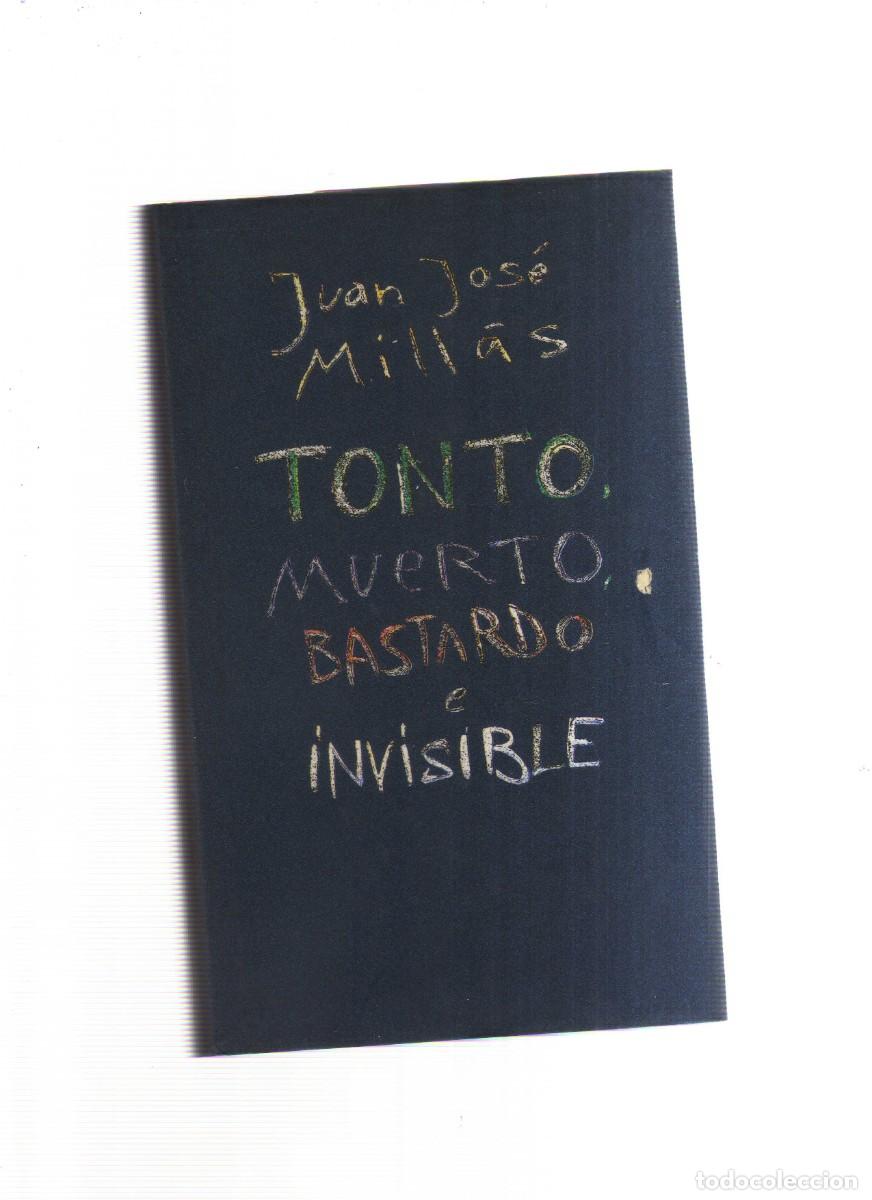 Juan José
Millás
TONTO,
MUERTO,
BASTARDO
e
INVISIBLE
todocoleccion